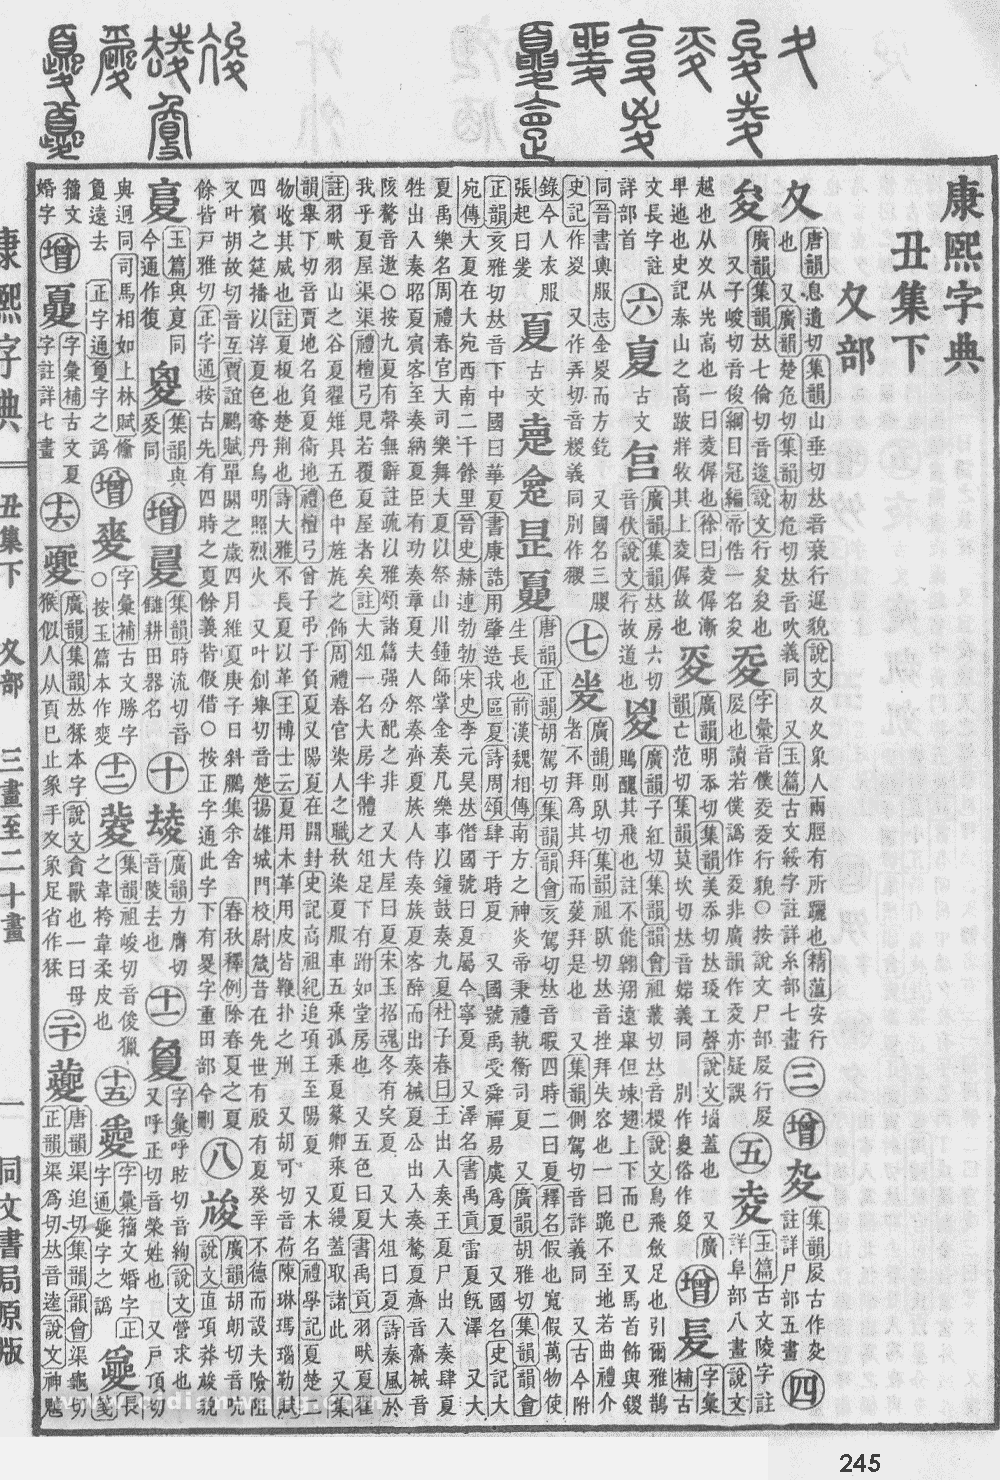 康熙字典
丑集下
夊部
夊
唐韻息遺切集韻山垂切𠀤音衰行遲貌說文夊夊象人兩脛有所躧也精薀安行
也 又廣韻楚危切集韻初危切𠀤音吹義同 又玉篇古文綏字註詳糸部七畫
三 增
集韻𡰥古作
註詳尸部五畫
四
夋
廣韻集韻𠀤七倫切音逡說文行夋夋也
又子峻切音俊綱目冠編帝俈一名夋
字彙音僕
行貌○按說文尸部𡰥行𡰥
𡰥也讀若僕譌作
非廣韻作
亦疑誤
五
夌
玉篇古文陵字註
詳阜部八畫說文
越也从夊从𡴆高也一曰夌徲也徐曰夌徲漸
𤰞迆也史記泰山之高跛牂牧其上夌徲故也
廣韻明忝切集韻美忝切
說文㙇蓋也 又廣
韻亡范切集韻莫坎切𠀤音
義同 別作
俗作
增
字彙
補古
文長字註
詳部首
六
夏
古文
廣韻集韻𠀤房六切
音伏說文行故道也
夎
廣韻子紅切集韻韻會祖叢切𠀤音椶說文鳥飛斂足也引爾雅鵲
鵙醜其飛也
註不能翱翔遠舉但竦翅上下而已 又馬首飾與鍐
同晉書輿服志金㚇而方釳 又國名三朡
史記作㚇 又作弄切音糉義同別作稯
七
夎
廣韻則臥切集韻祖臥切𠀤音挫拜失容也一曰跪不至地若曲禮介
者不拜爲其拜而蓌拜是也 又集韻側駕切音詐義同 又古今附
錄今人衣服
張起曰夎
夏
古文
唐韻正韻胡駕切集韻韻會亥駕切𠀤音暇四時二曰夏釋名假也寬假萬物使
生長也前漢魏相傳南方之神炎帝秉禮執衡司夏 又廣韻胡雅切集韻韻會
正韻亥雅切𠀤音下中國曰華夏書康誥用肇造我區夏詩周頌肆于時夏 又國號禹受舜禪易虞爲夏 又國名史記大
宛傳大夏在大宛西南二千餘里晉史赫連勃勃宋史李元昊𠀤僭國號曰夏屬今寧夏 又澤名書禹貢雷夏旣澤 又大
夏禹樂名周禮春官大司樂舞大夏以祭山川鍾師掌金奏凡樂事以鐘鼓奏九夏杜子春曰王出入奏王夏尸出入奏肆夏
牲出入奏昭夏賓客至奏納夏臣有功奏章夏夫人祭奏齊夏族人侍奏族夏客醉而出奏祴夏公出入奏驁夏齊音齋祴音
陔驁音遨○按九夏有聲無辭註疏以雅頌諸篇强分配之非 又大屋曰夏宋玉招魂冬有突夏 又大俎曰夏詩秦風於
我乎夏屋渠渠禮檀弓見若覆夏屋者矣註大俎一名大房半體之俎足下有跗如堂房也 又五色曰夏書禹貢羽畎夏翟
註羽畎羽山之谷夏翟雉具五色中旌旄之飾周禮春官染人之職秋染夏服車五乘孤乘夏篆卿乘夏縵蓋取諸此 又集
韻舉下切音賈地名負夏衞地禮檀弓曾子弔于負夏又陽夏在開封史記高祖紀追項王至陽夏 又木名禮學記夏楚二
物收其威也註夏榎也楚荆也詩大雅不長夏以革王博士云夏用木革用皮皆鞭扑之刑 又胡可切音荷陳琳瑪瑙勒賦
四賓之筵播以淳夏色奪丹烏明照烈火 又叶創舉切音楚揚雄城門校尉箴昔在先世有殷有夏癸辛不德而設夫險阻
又叶胡故切音互賈誼鵩賦單閼之歲四月維夏庚子日斜鵩集余舍 春秋釋例除春夏之夏
餘皆戸雅切正字通按古先有四時之夏餘義皆假借○按正字通此字下有夓字重田部今刪
八
廣韻胡朗切音吭
說文直項莽㚘貌
玉篇與夏同
今通作復
集韻與
同
增
集韻時流切音
雔耕田器名
十
廣韻力膺切
音陵去也
十一
敻
字彙呼眩切音絢說文營求也
又呼正切音榮姓也 又戸頂切
與迥同司馬相如上林賦儵
敻遠去 正字通敻字之譌
增
字彙補古文勝字
○按玉篇本作奱
十二
集韻祖峻切音俊獵
之韋袴韋柔皮也
十五
字彙籀文婚字正
字通
字之譌
長箋
籀文
婚字
增
字彙補古文夏
字註詳七畫
十六
夒
廣韻集韻𠀤猱本字說文貪獸也一曰母
猴似人从頁巳止象手夊象足省作猱
二十
夔
唐韻渠追切集韻韻會渠龜切
正韻渠爲切𠀤音逵說文神魖
康熙字典
丑集下
夊部
三畫至二十畫
一
同文書局原版
245